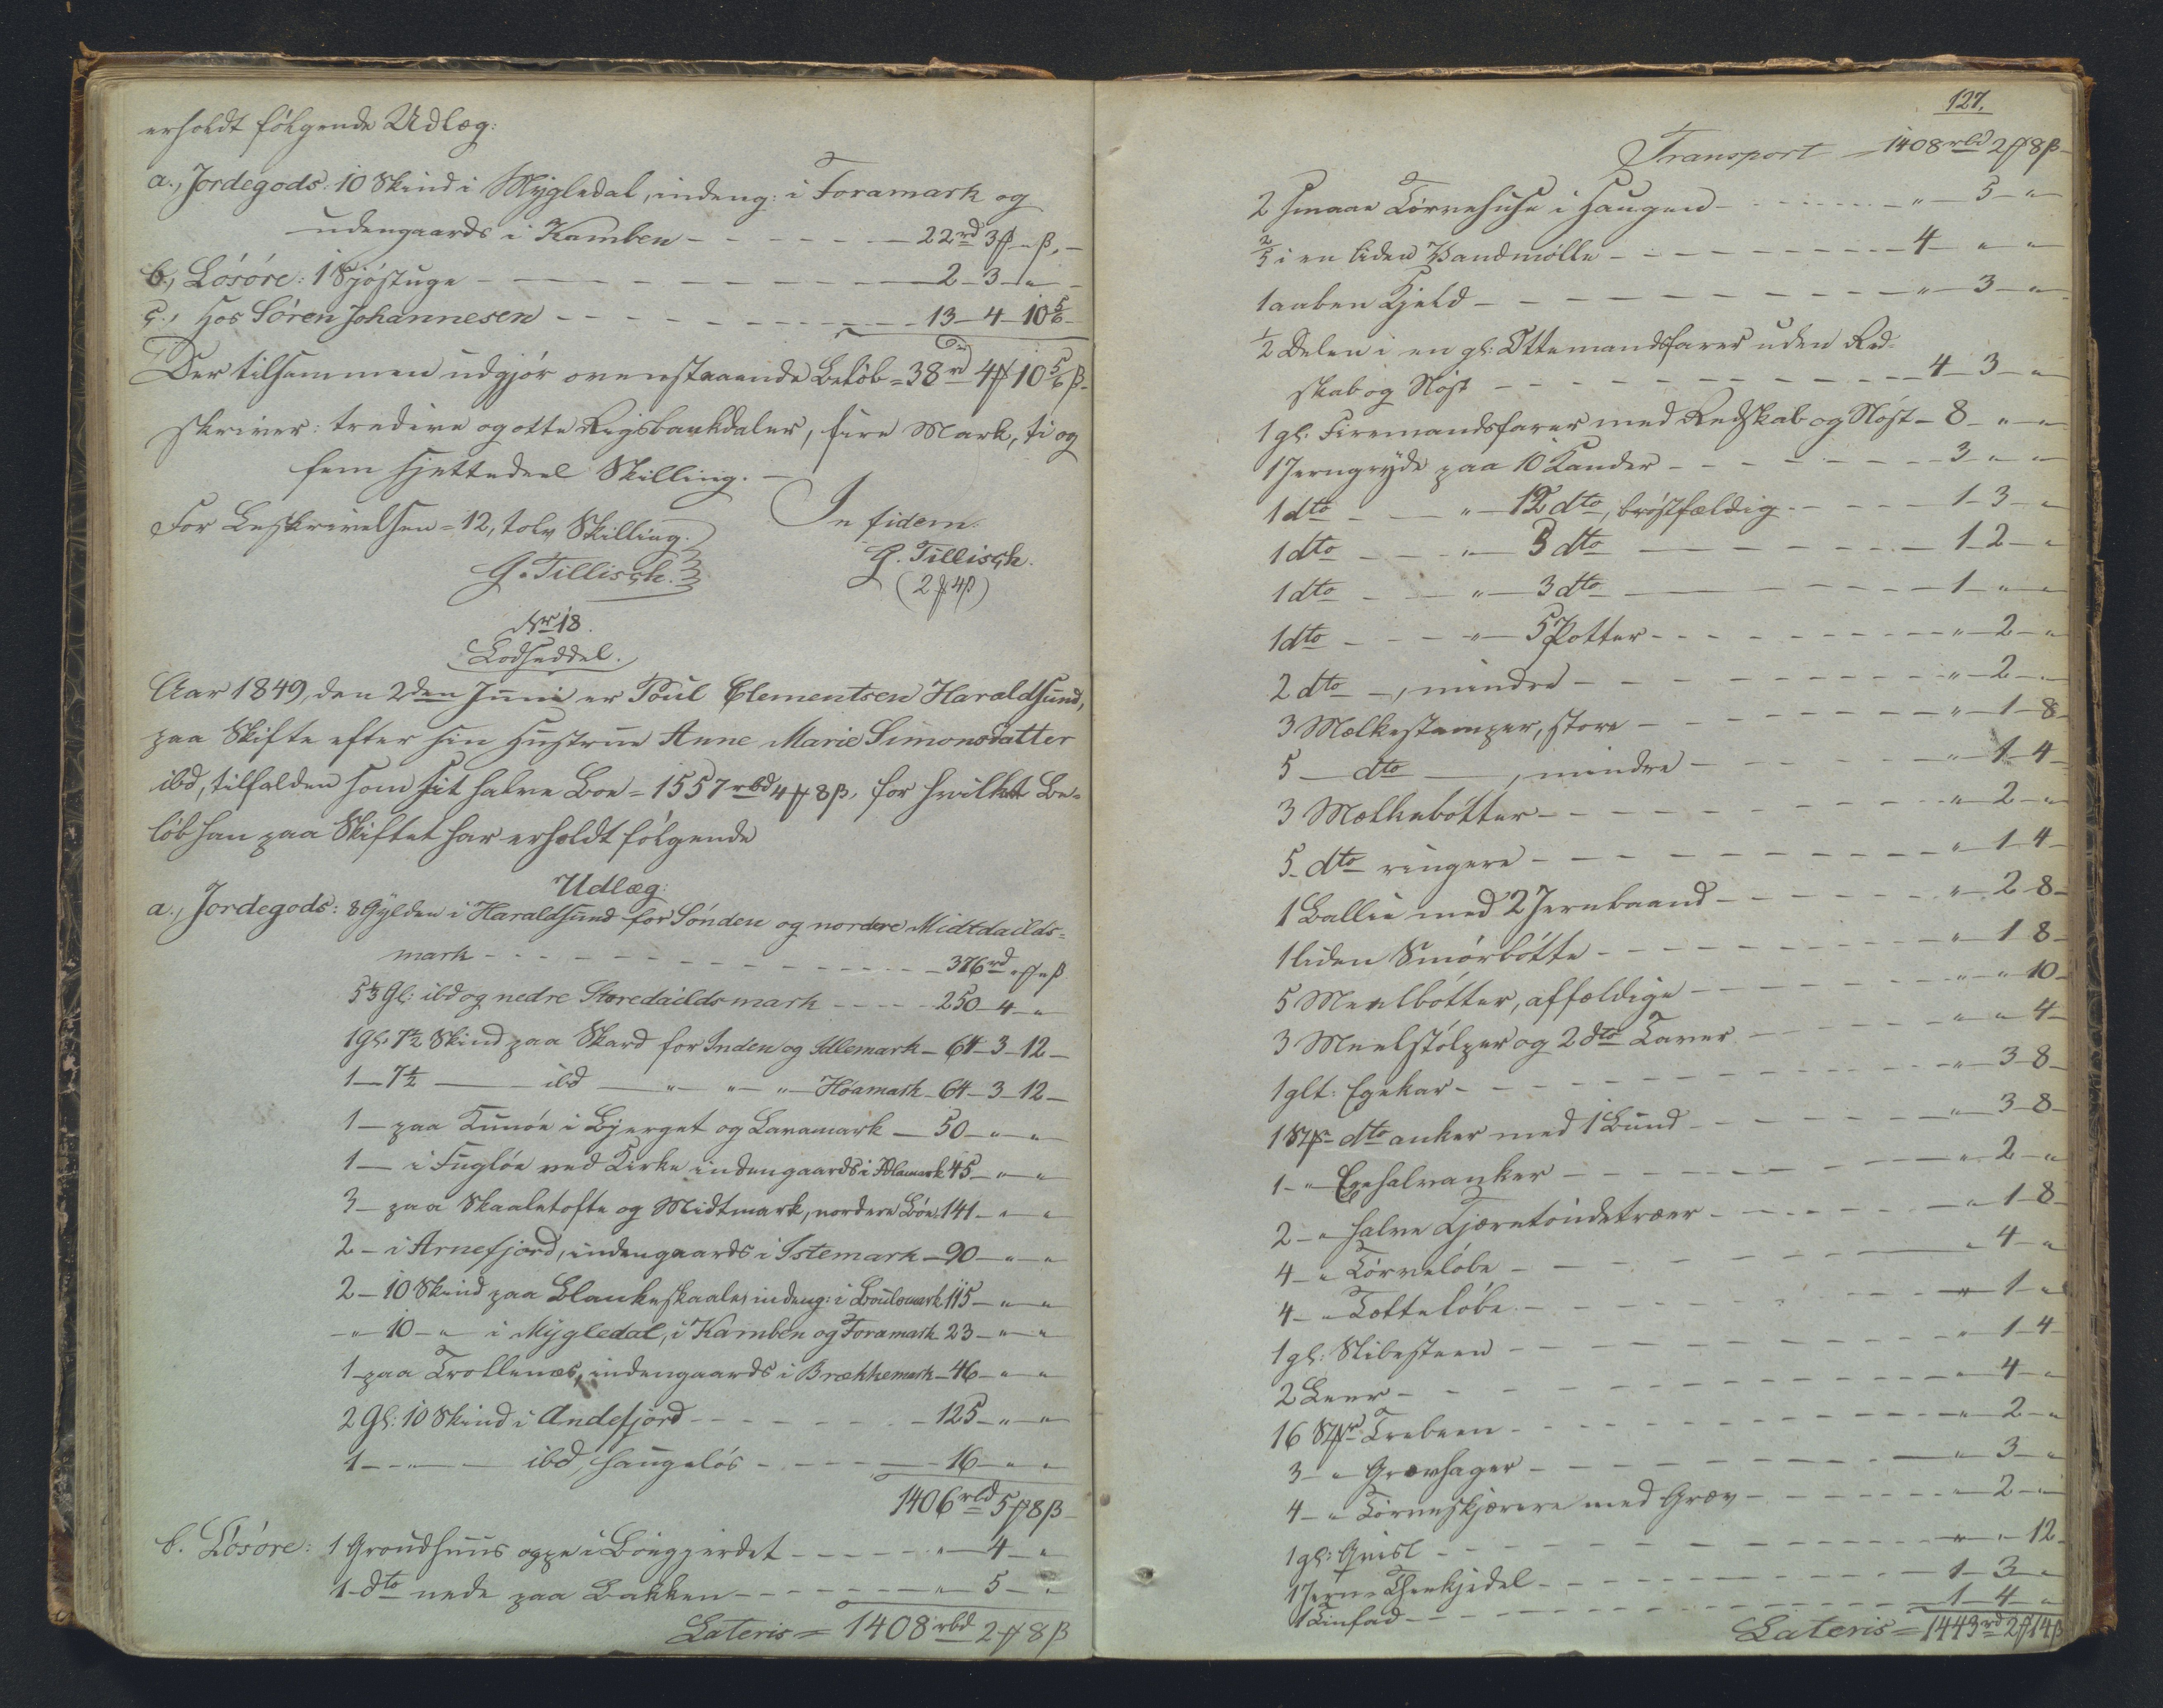 erholdt følgende Udlæg:
a., Jordegods: 10 Skind i Mygledal, indeng: i Foramark og
udengaards i Kamben - - - - - 22rd 3 # " ß. -
b., Løsøre: 1 Sjøstuge - - - - - 2 - 3 - "
c., Hos Søren Johannesen - - - - - 13 - 4 - 10 5/6
Der tilsammen udgjør ovenstaaende Beløb = 38rd 4 # 10 5/6 ß.
skriver: tredive og otte Rigsbankdaler, fire Mark, ti og
fem sjettedeel Skilling. -
For Beskrivelsen = 12, tolv Skilling. In fidem.
G. Tillisch. G. Tillisch.
(2 # 4 ß)
Nr 18.
Lodseddel.
Aar 1849, den 2den Juni er Poul Clementsen Haraldsund,
paa Skifte efter sin Hustrue Anne Marie Simonsdatter
ibd, tilfalden som sit halve Boe = 1557 rbd 4 # 8 ß, for hvilket Be-
løb han paa Skiftet har erholdt følgende
Udlæg:
a., Jordegods: 8 Gylden i Haraldsund for Sønden og nordere Midtdailds-
mark - - - - - 376rd " # " ß
5 1/3 Gl: ibd og nedre Storedaildsmark - - - - 250 - 4 - "
1 Gl: 7 1/2 Skind paa Skard for Inden og Idlemark - 64 - 3 - 12 -
1 - 7 1/2 - ibd - " - " - " - Høamark - 64 - 3 - 12 -
1 - paa Kunøe i Bjerget og Laramark - 50 - " - "
1 - i Fugløe ved Kirke indengaards i 45 - " - "
3 - paa Skaaletofte og Midtmark, nordere Bøe: 141 - " - "
2 - i Arnefjord, indengaards i Istemark - 90 - " - "
2 - 10 Skind paa Blankeskaale, indeng: i 115 - " - "
- " 10 - " i Mygledal, i Kamben og Foramark 23 - " - "
1 - paa Trollenæs, indengaards i Brækkemark - 46 - " - "
2 Gl: 10 Skind i Andefjord - - - - - 125 - " - "
1 - " - ibd, haugeløs - - - - - 16 - " - "
1406 rbd 5 # 8 ß
b. Løsøre: 1 Groudhuus oppe i Bøegjerdet - - - - - " - 4 - "
1 dto nede paa Bakken - - - - - " - 5 - "
Lateris = 1408 rbd 2 # 8 ß
127.
Transport = 1408 rbd 2 # 8 ß
2 smaae Tørvehuse i Haugen - - - - - " - 5 - "
2/5 i en liden Vandmølle - - - - - 4 - " - "
1 aaben Kjeld - - - - - " - 3 - "
1/2 Delen i en gl: Ottemandsfarer uden Red-
skab og Nøst - - - - - 4 - 3 - "
1 gl: Firemandsfarer med Redskab og Nøst - 8 - " - "
1 Jerngryde paa 10 Kander - - - - - 3 - " - "
1 dto - " - 12 dto, brøstfældig - - - - 1 - 3 - "
1 dto - " - 5 dto - - - - - 1 - 2 - "
1 dto - " - 3 dto - - - - - 1 - " - "
1 dto - " - 5 Potter - - - - - " - 2 - "
2 dto -, mindre - - - - - " - 2 - "
3 Mælkestamper, store - - - - - " - 1 - 8 -
5 - dto - , mindre - - - - - " - 1 - 4 -
3 Mælkebøtter - - - - - " - 2 - "
5 - dto ringere - - - - - " - 1 - 4 -
1 Ballie med 2 Jernbaand - - - - - " - 2 - 8 -
1 liden Smørbøtte - - - - - " - 1 - 8 -
5 Meelbøtter, affældige - - - - - " - " - 10 -
3 Meelstølper og 2 dto Laver - - - - - " - " - 4 -
1 glt: Egekar - - - - - " - 3 - 8 -
1 Stk dto anker med 1 Bund - - - - - " - 3 - 8 -
1 - " Egehalvanker - - - - - " - 2 - "
2 - " halve Kjærnetøndetræer - - - - - " - 1 - 8 -
4 - " Tørveløbe - - - - - " - 4 - "
4 - " Totteløbe - - - - - " - 1 - "
1 gl: Slibesteen - - - - - " - 1 - 4 -
2 Leer - - - - - " - 4 - "
16 Stkr - - - - - " - 2 - "
3 - " Gravhager - - - - - " - 3 - "
4 - " Tørveskjærere med Grev - - - - - " - 2 - "
1 gl: - - - - - " - " - 12 -
1 Jern Theekjedel - - - - - 1 - 3 - "
1 Tinfad - - - - - 1 - 4 - "
Lateris = 1443rd 2 # 14 ß